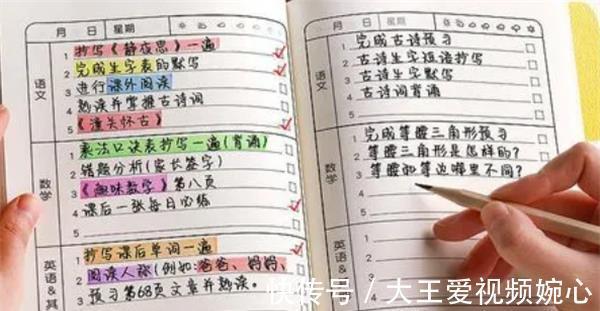 月 日 星期
语文
1 抄写《静夜思》一遍
2 完成生字表的默写
3 进行课外阅读
4 熟读并掌握古诗词
5 《潼关怀古》
数学
1 乘法口诀表抄写一遍(背诵)
2 错题分析(家长签字)
3 《趣味数学》第八页
4 课后一张每日必练
5
英语&其
1 抄写课后单词一遍
2 阅读人称(例如:爸爸、妈妈、
3 预习第68页文章并熟读。
月 日 星期
语文
1 完成古诗预习
2 古诗生字短语抄写
3 古诗生字默写
4 古诗词背诵
5
数学
1 完成等腰三角形预习
2 等腰三角形是怎样的?
3 等腰和等边哪里不同?
4
5
英语&
1
2
3
快传号 / 大王爱视频婉心